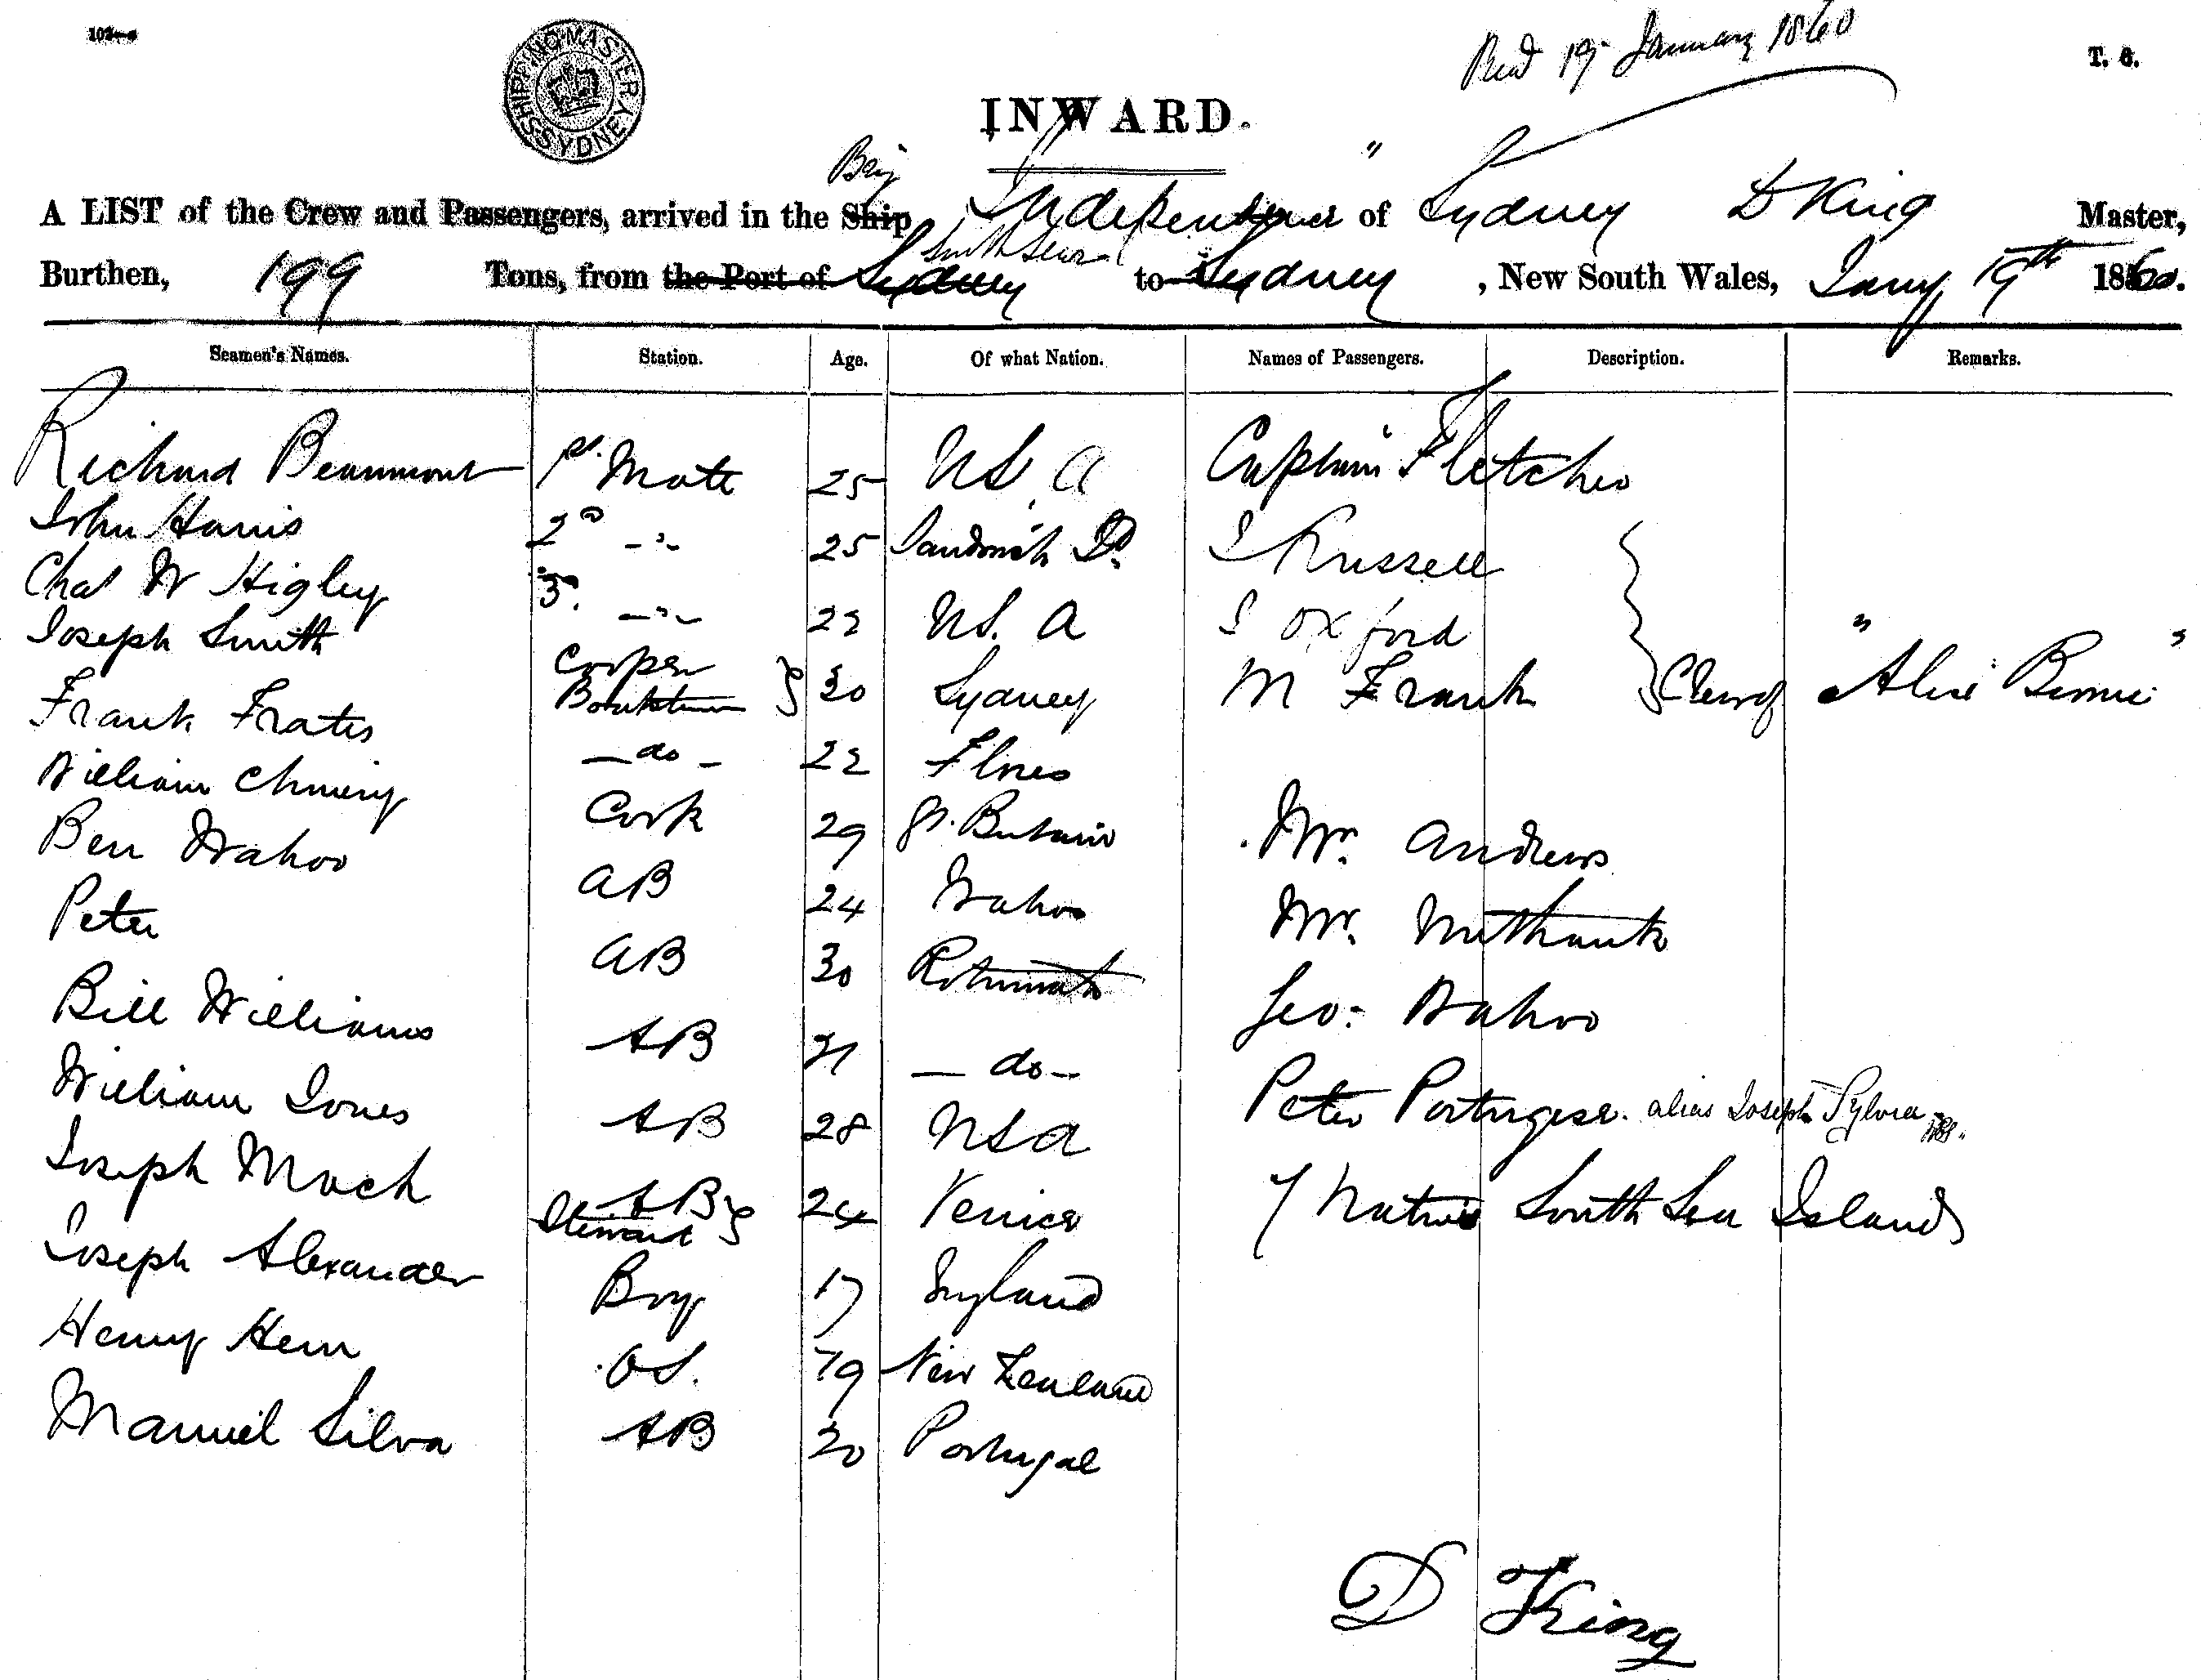 SHIPPING MASTER SYDNEY
19 January 1860
T. 6.
INWARD.
A LIST of the Crew and Passengers, arrived in the Ship Brig "Independence" of Sydney D King Master,
Burthen, 199 Tons, from the Port of Sydney South Seas to Sydney, New South Wales, Jany 19th 1860.
Seamen's Names. Station. Age. Of what Nation. Names of Passengers. Description. Remarks.
Richard Beaumont 1st. Mate 25 U.S.A Captain Fletcher
John Harris 2d -"- 25 Sandwich Is. S Russell
Chas W Higley 3d. -"- 22 U.S.A S Oxford
Joseph Smith Cooper Boatsteerer 30 Sydney M Frank Crew of "Alice Brown"
Frank Frates -do- 22 Flores
William Cook 29 Gt. Britain Mr. Andrews
Ben Wahoo AB 24 Wahoo Mr.
Peter AB 30 Rotumah Geo: Wahoo
Bill Williams AB 21 -do- Peter Portugese. alias Joseph Sylvia
William Jones AB 28 USA 7 Natives South Sea Islands
Joseph Mach AB Steward 24 Venice
Joseph Alexander Boy 17 England
Henry Hem OS. 19 New Zealand
Manuel Silva AB 20 Portugal
D King